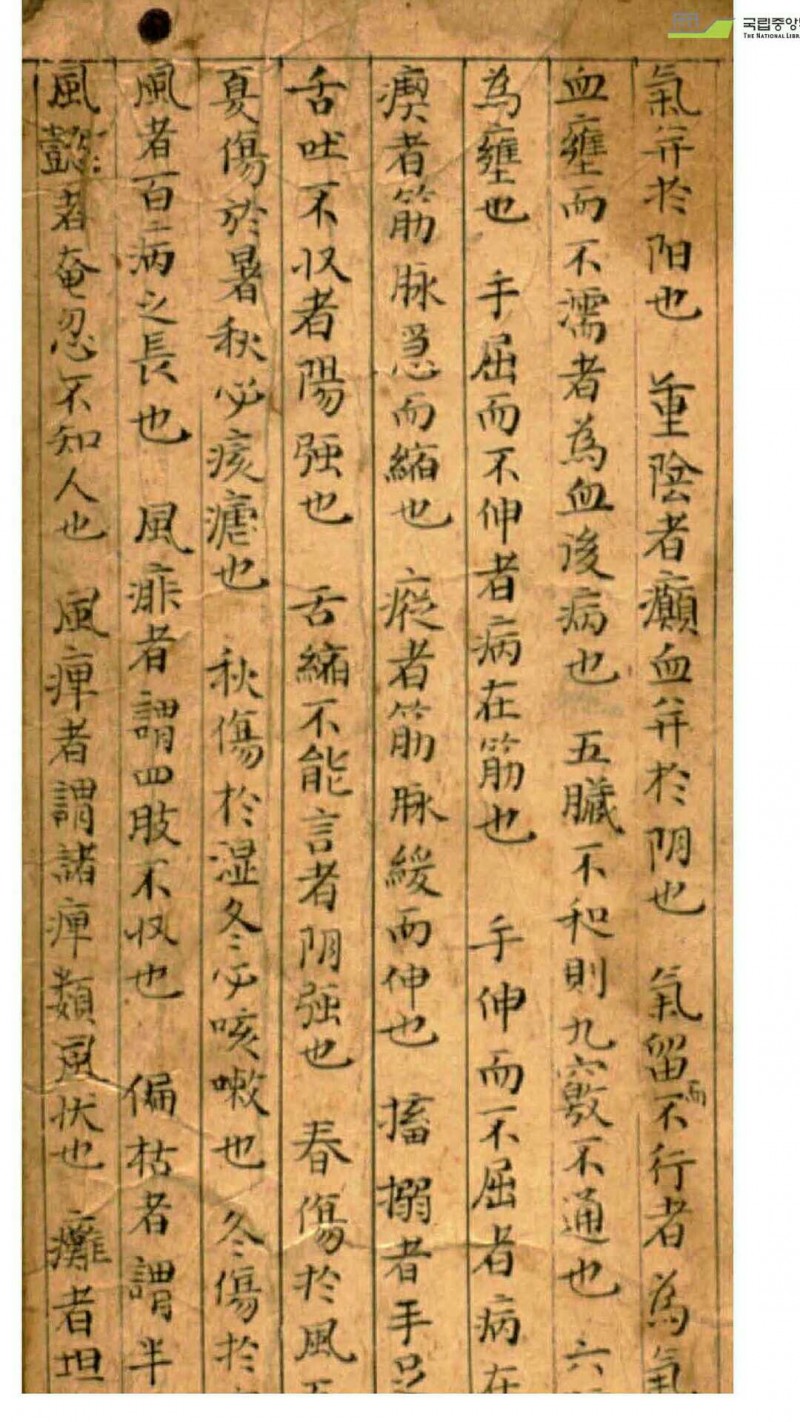 국립중앙
THE NATIONAL LIBR
氣并於阳也 重陰者癲血并於阴也 氣留而不行者為氣
血壅而不濡者為血後病也 五臟不和則九竅不通也 六
為壅也 手屈而不伸者病在筋也 手伸而不屈者病在
瘈者筋脉急而縮也 瘲者筋脉緩而伸也 搐搦者手足
舌吐不收者陽强也 舌縮不能言者阴强也 春傷於風
夏傷於暑秋必痎瘧也 秋傷於湿冬必咳嗽也 冬傷於
風者百病之長也 風痱者謂四肢不收也 偏枯者謂半
風懿者奄忽不知人也 風痺者謂諸痺類風状也 癱者坦